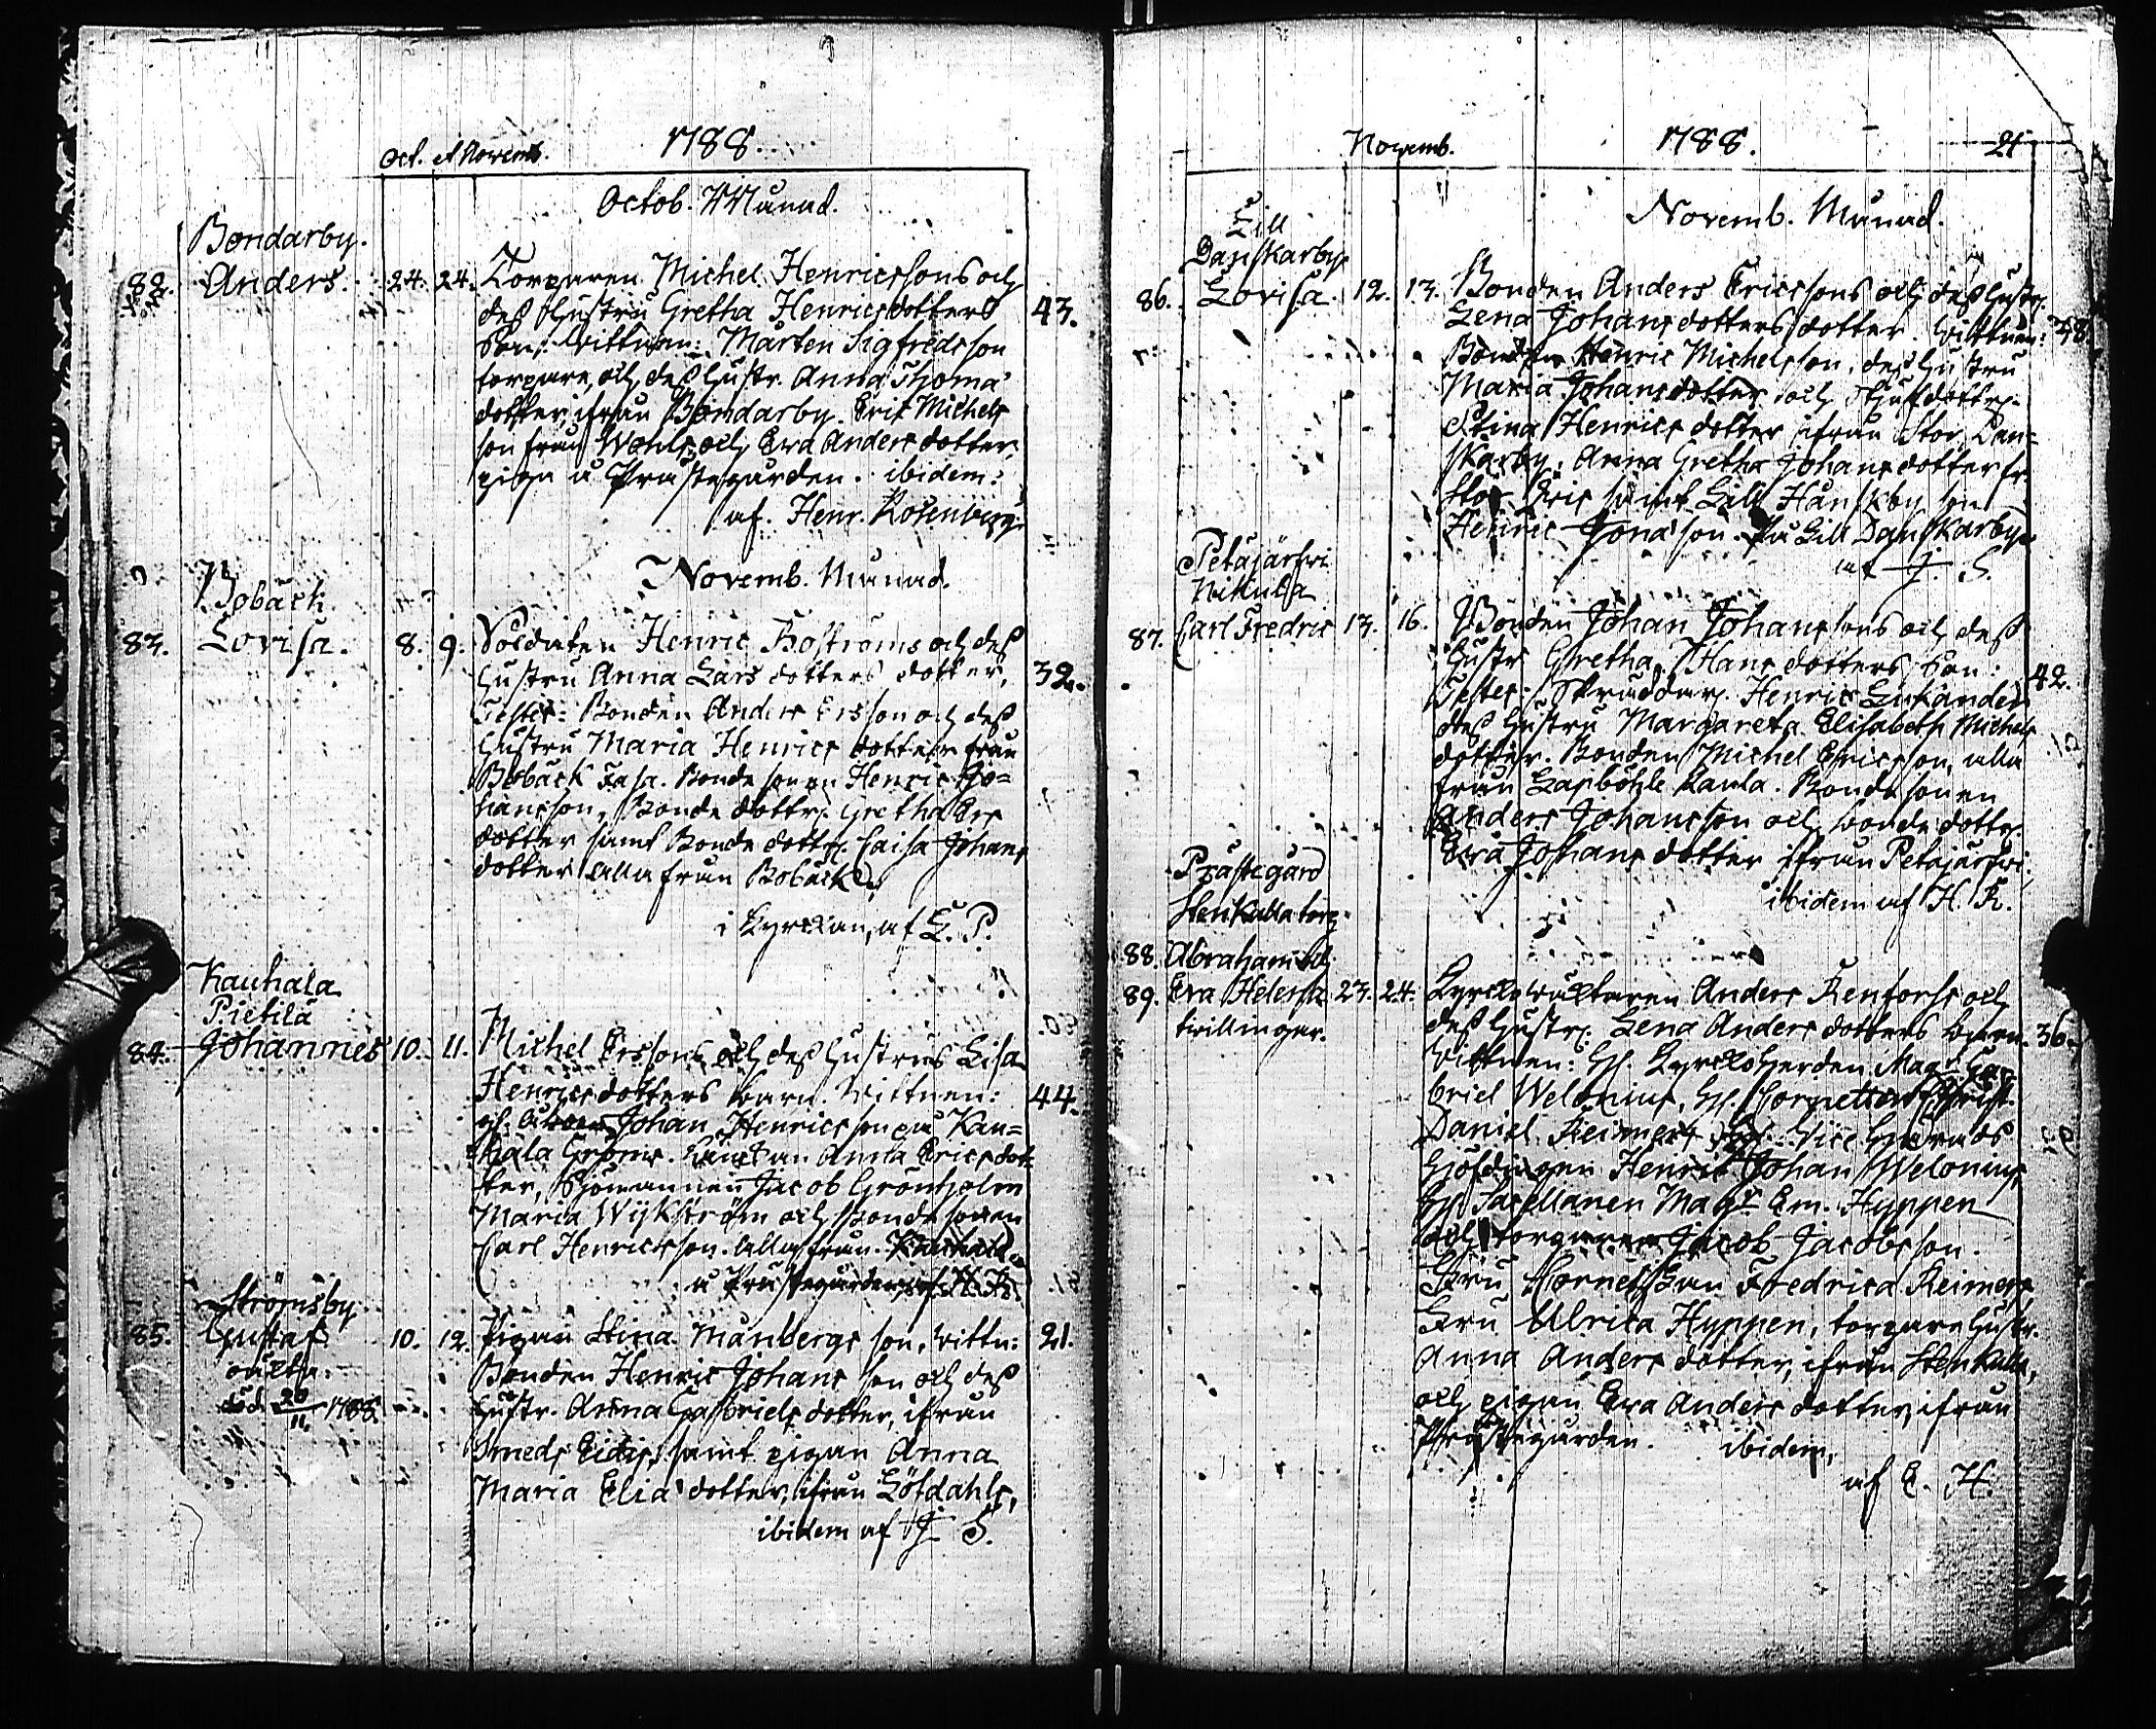 Oct. et Novemb. 1788.
Octob. Månad.
Bondarby.
82. Anders. 24. 24. Torparen Michel Henricssons och
dess Hustru Gretha Henricsdotters 43.
Son. Wittnen: Mårten Sigfredsson
torpare, och dess Hustr. Anna Thoma
dotter ifrån Bondarby. Erik Michels
son från Wohls, och Ewa Andersdotter
piga å Prästegården. ibidem.
af Henr. Rosenberg.
Novemb. Månad.
Bobäck
83. Lovisa. 8. 9. Soldaten Henric Boströms och dess
Hustru Anna Lars dotters dotter, 32.
Testes: Bonden Anders Ersson och dess
Hustru Maria Henrics dotter från
Bobäck Fasa. Bonde sonen Henric Jo=
hansson, Bonde dottr. Gretha Ers
dotter samt Bonde dottr. Caisa Johans
dotter alla från Bobäck.
i Kyrckan, af L. P.
Kauhala
Pietilä
84. Johannes 10. 11. Michel Erssons och dess Hustrus Lisa
Henricsdotters barn. Wittnen: 44.
Johan Henricsson på Kau=
hala Gröns. Anna Ericsdot
ter, Sjömannen Jacob Grönholm
Maria Wijkström och Bonde sonen
Carl Henricsson. alla från Kauhala
å Prästegården, af H. R.
Strömsby
85. Gustaf 10. 12. Pigan Stina Månbergs son, wittn: 21.
oäkta. Bonden Henric Johans son och dess
död 20/11 1788. Hustr. Anna Gabriels dotter, ifrån
Smeds Eidis, samt pigan Anna
Maria Elia dotter, ifrån Löfdahls,
ibidem af J. S.
Novemb. 1788. 21
Novemb. Månad.
Lill
Danskarby
86. Lovisa. 12. 13. Bonden Anders Ericssons och dess Hustr.
Lena Johansdotters dotter. Wittnen: 38.
Bonden Henric Michelsson, dess Hustru
Maria Johansdotter och
Stina Henrics dotter ifrån Stor Dan=
skarby. Anna Gretha Johansdotter fr.
Stor samt Lill
Henric Jona son. På Lill Danskarby
af J. S.
Petäjärfwi
Nikula
87. Carl Fredric 13. 16. Bonden Johan Johanssons och dess
Hustr. Gretha Hans dotters Son: 42.
Testes: Skräddar. Henric Lukander
dess Hustru Margareta Elisabeth Michels
dotter. Bonden Michel Ericsson, alla
från Lapböhle Kaula. Bondesonen
Anders Johansson och bonde dottr.
Ewa Johans dotter ifrån Petajärfwi
ibidem af H. R.
Prästegård
Stenkulla torp.
88. Abraham och
89. Eva Helena 23. 24. Kyrckowäktaren Anders Renfors och
twillingar. dess Hustr. Lena Anders dotters barn. 36.
Wittnen: H. Kyrckoherden Mag. Ga
briel Welonius, H. Cornetten Christ.
Daniel Reimers Vice Härads
Höfdingen Henric Johan Welonius,
H. Sacellanen Magr. Em. Hyppen
och torparen Jacob Jacobsson.
Fru Cornetskan Fredrica Reimers,
Fru Ulrica Hyppen, torpare Hustr.
Anna Anders dotter, ifrån Stenkulla,
och pigan Ewa Anders dotter, ifrån
Prästegården. ibidem,
af E. H.